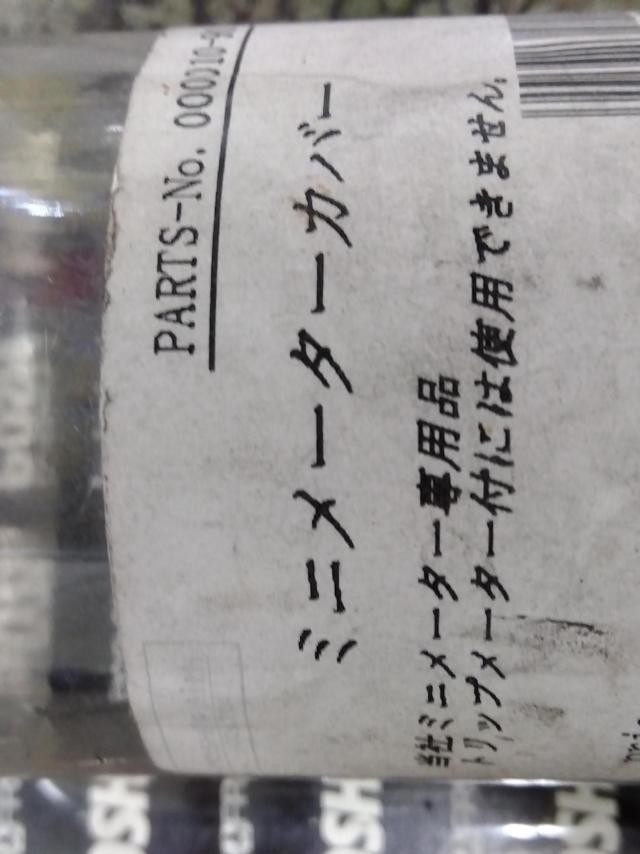 PARTS-No.
ミニメーターカバー
当社ミニメーター専用品
トリップメーター付には使用できません。